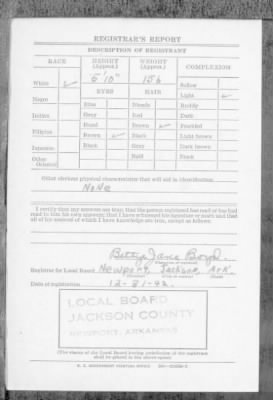 REGISTRAR'S REPORT
DESCRIPTION OF REGISTRANT
RACE HEIGHT (Approx.) WEIGHT (Approx.) COMPLEXION
5'10" 156
White Sallow
EYES HAIR Light
Negro Blue Blonde Ruddy
Indian Gray Red Dark
Filipino Hazel Brown Freckled
Brown Black Light brown
Japanese Black Gray Dark brown
Other Oriental Bald Black
Other obvious physical characteristics that will aid in identification
None
I certify that my answers are true; that the person registered has read or has had
read to him his own answers; that I have witnessed his signature or mark and that
all of his answers of which I have knowledge are true, except as follows:
Betty Jane Boyd
Registrar for Local Board Newport, Jackson, Ark.
Date of registration 12-31-42
LOCAL BOARD
JACKSON COUNTY
NEWPORT, ARKANSAS
(The stamp of the Local Board having jurisdiction of the registrant
shall be placed in the above space)
U. S. GOVERNMENT PRINTING OFFICE